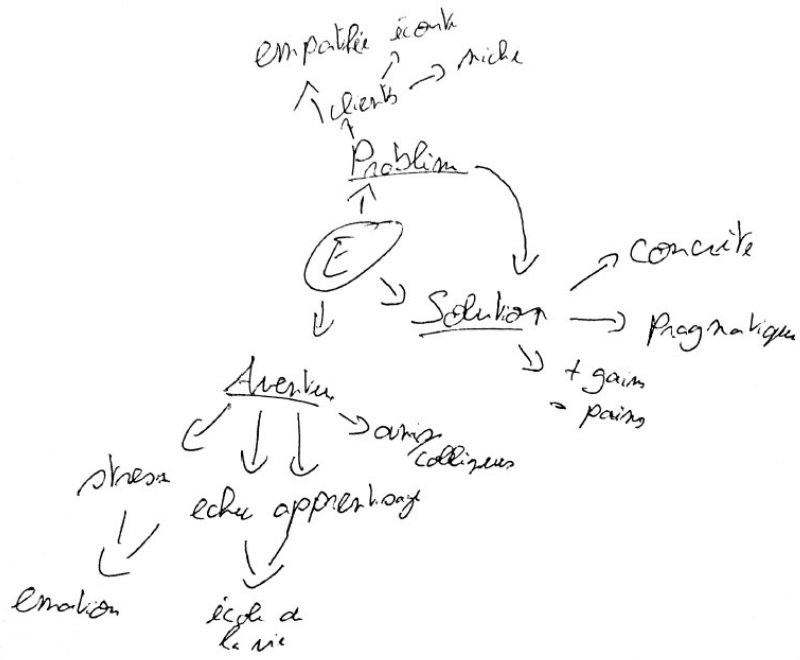 empathie écoute
clients niche
Problème
E
Solution
concrète
pragmatique
+ gains
- pains
Aventure
amis/
collègues
stress
echec apprentissage
emotion
école de
la vie